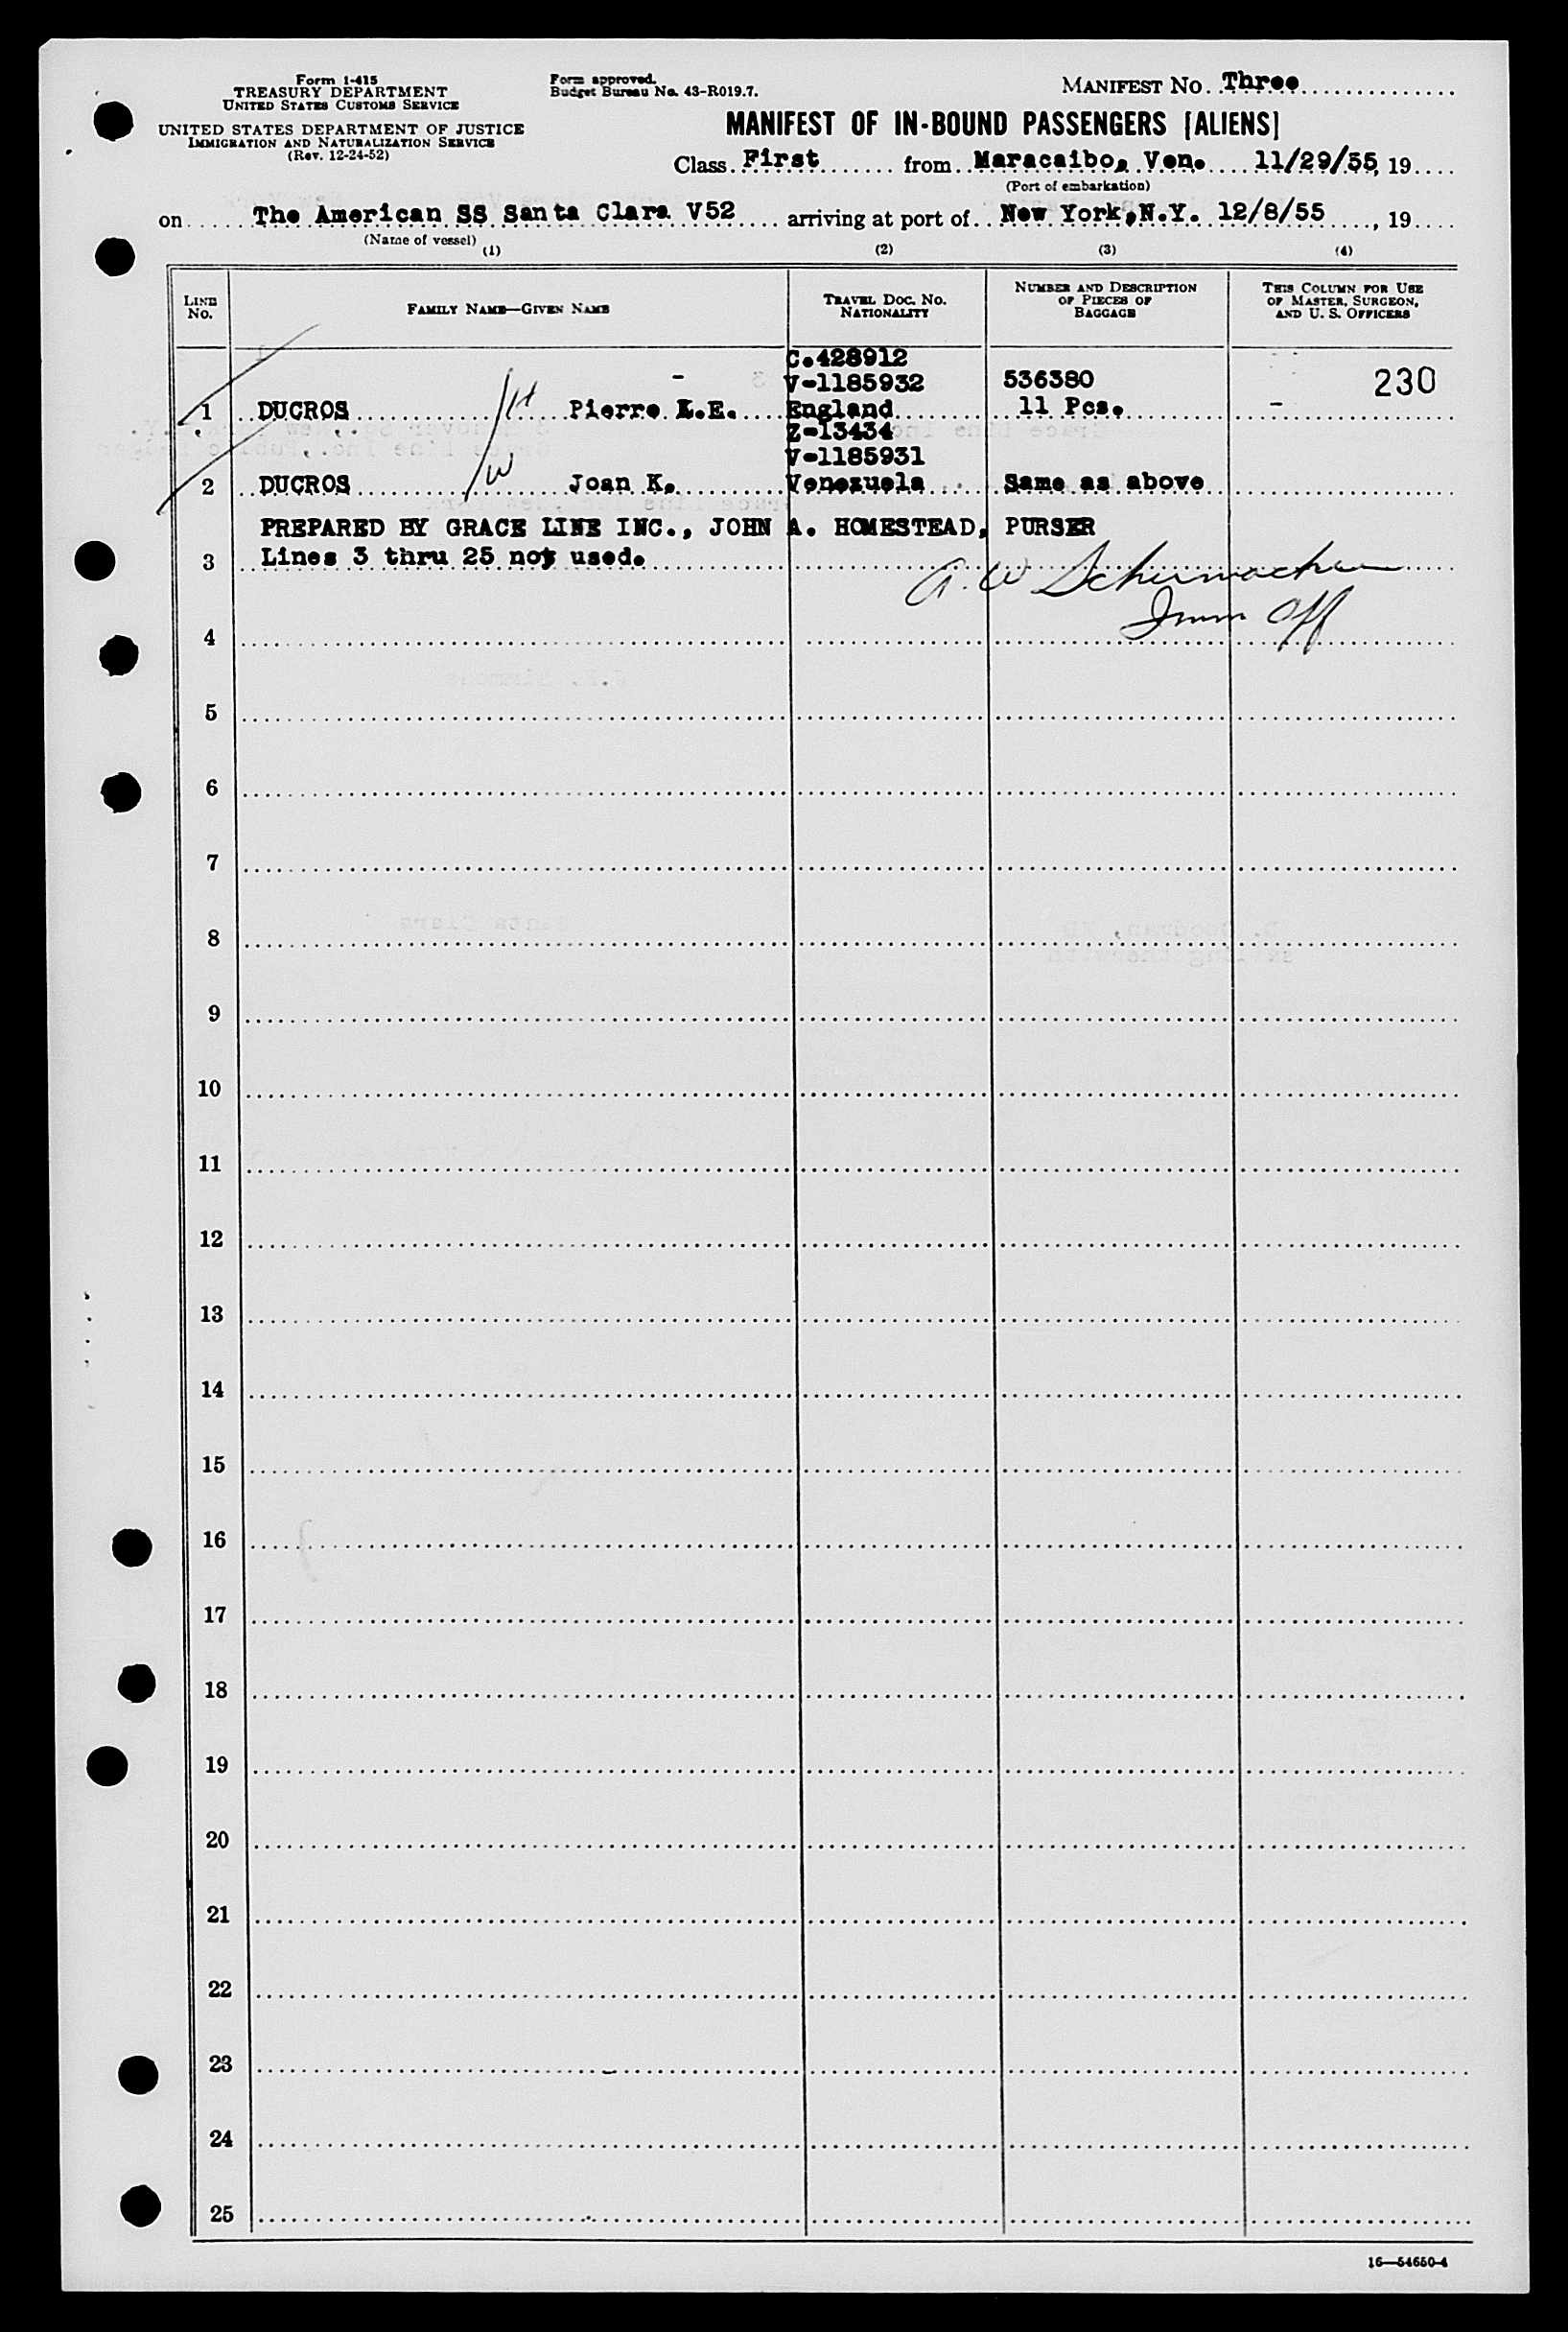 Form I-415
TREASURY DEPARTMENT
UNITED STATES CUSTOMS SERVICE
UNITED STATES DEPARTMENT OF JUSTICE
IMMIGRATION AND NATURALIZATION SERVICE
(Rev. 12-24-52)
Form approved.
Budget Bureau No. 43-R019.7.
MANIFEST NO. Three
MANIFEST OF IN-BOUND PASSENGERS [ALIENS]
Class First from Maracaibo, Ven. 11/29/55, 19
(Port of embarkation)
on The American SS Santa Clara V52 arriving at port of New York, N.Y. 12/8/55, 19
(Name of vessel)
(1) (2) (3) (4)
LINE NO.
FAMILY NAME—GIVEN NAME
TRAVEL DOC. NO. NATIONALITY
NUMBER AND DESCRIPTION OF PIECES OF BAGGAGE
THIS COLUMN FOR USE OF MASTER, SURGEON, AND U. S. OFFICERS
C.428912
V-1185932 536380 230
1 DUCROS H Pierre L.E. England 11 Pcs.
Z-13434
V-1185931
2 DUCROS W Joan K. Venezuela Same as above
PREPARED BY GRACE LINE INC., JOHN A. HOMESTEAD, PURSER
3 Lines 3 thru 25 not used.
A. W Schumacher
Imm Off
4
5
6
7
8
9
10
11
12
13
14
15
16
17
18
19
20
21
22
23
24
25
16—54650-4